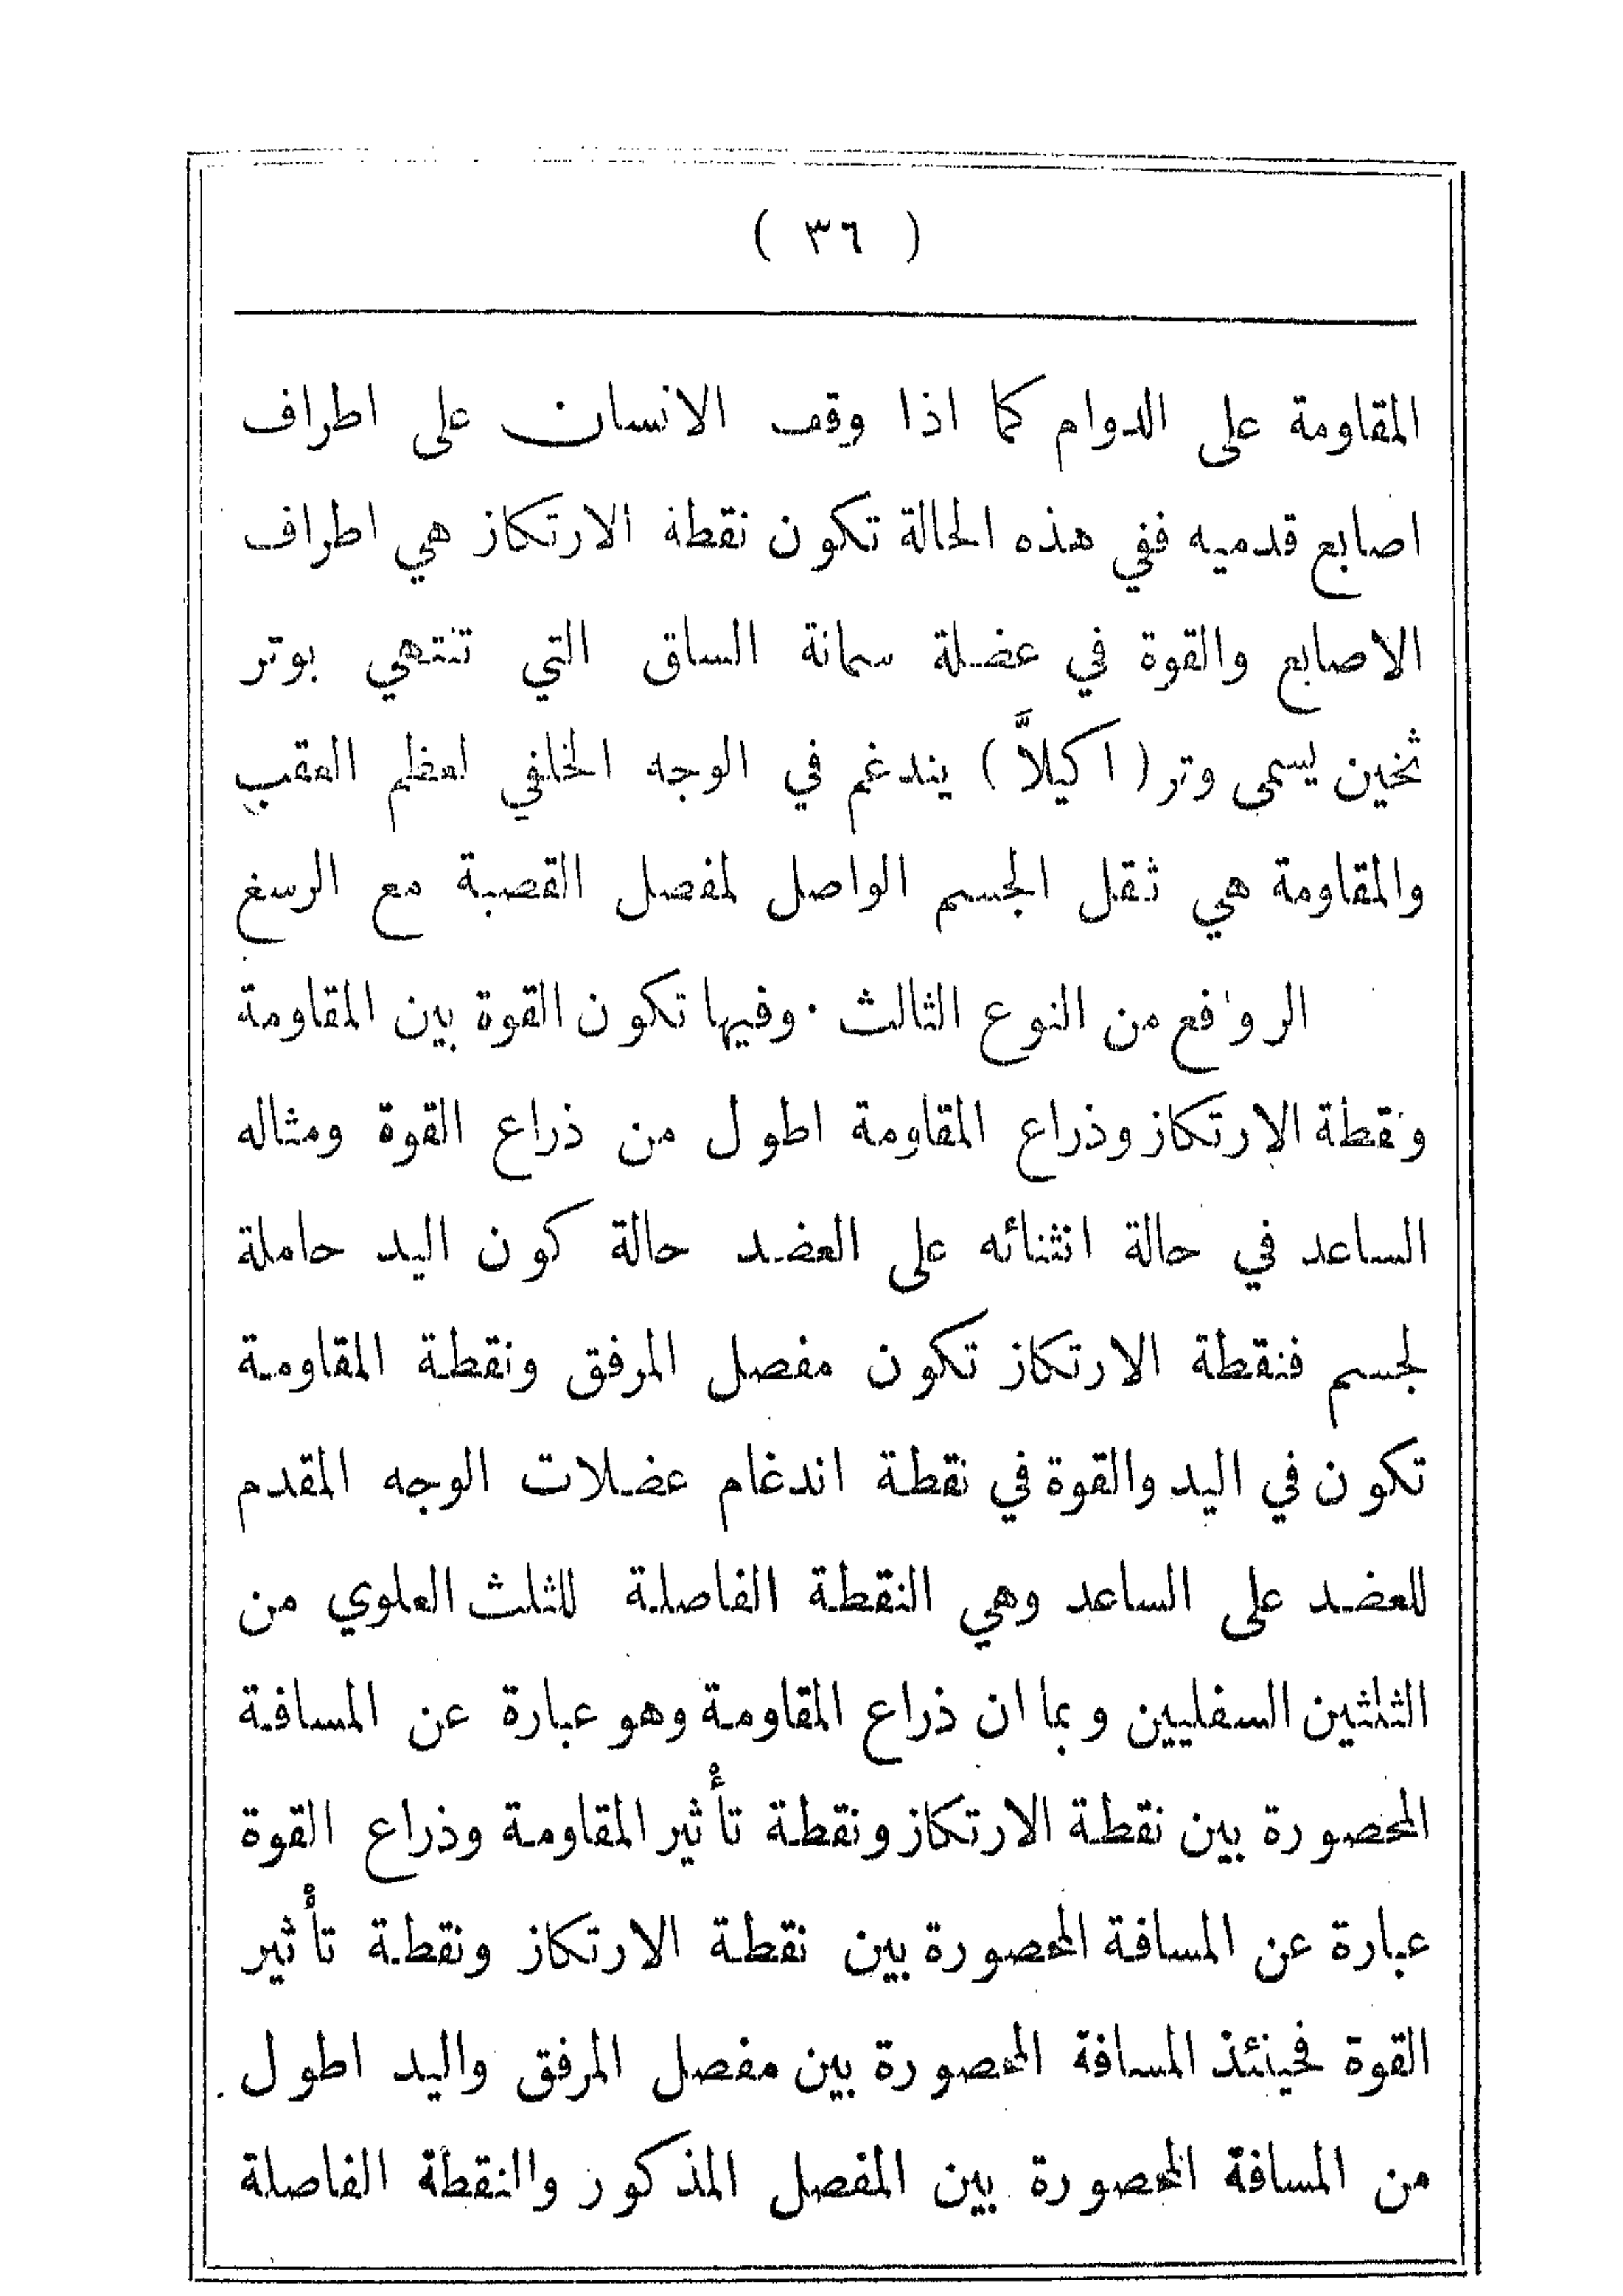 ( ٣٦ )
المقاومة على الدوام كما اذا وقف الانسان على اطراف
اصابع قدميه ففي هذه الحالة تكون نقطة الارتكاز هي اطراف
الاصابع والقوة في عضلة سمانة الساق التي تنتهي بوتر
ثخين يسمى وتر ( اكيلاَّ ) يندغم في الوجه الخلفي لعظم العقب
والمقاومة هي ثقل الجسم الواصل لمفصل القصبة مع الرسغ
الروافع من النوع الثالث · وفيها تكون القوة بين المقاومة
ونقطة الارتكاز وذراع المقاومة اطول من ذراع القوة ومثاله
الساعد في حالة انثنائه على العضد حالة كون اليد حاملة
لجسم فنقطة الارتكاز تكون مفصل المرفق ونقطة المقاومة
تكون في اليد والقوة في نقطة اندغام عضلات الوجه المقدم
للعضد على الساعد وهي النقطة الفاصلة للثلث العلوي من
الثلثين السفليين وبما ان ذراع المقاومة وهو عبارة عن المسافة
المحصورة بين نقطة الارتكاز ونقطة تأْثير المقاومة وذراع القوة
عبارة عن المسافة المحصورة بين نقطة الارتكاز ونقطة تأْثير
القوة فحينئذ المسافة المحصورة بين مفصل المرفق واليد اطول
من المسافة المحصورة بين المفصل المذكور والنقطة الفاصلة